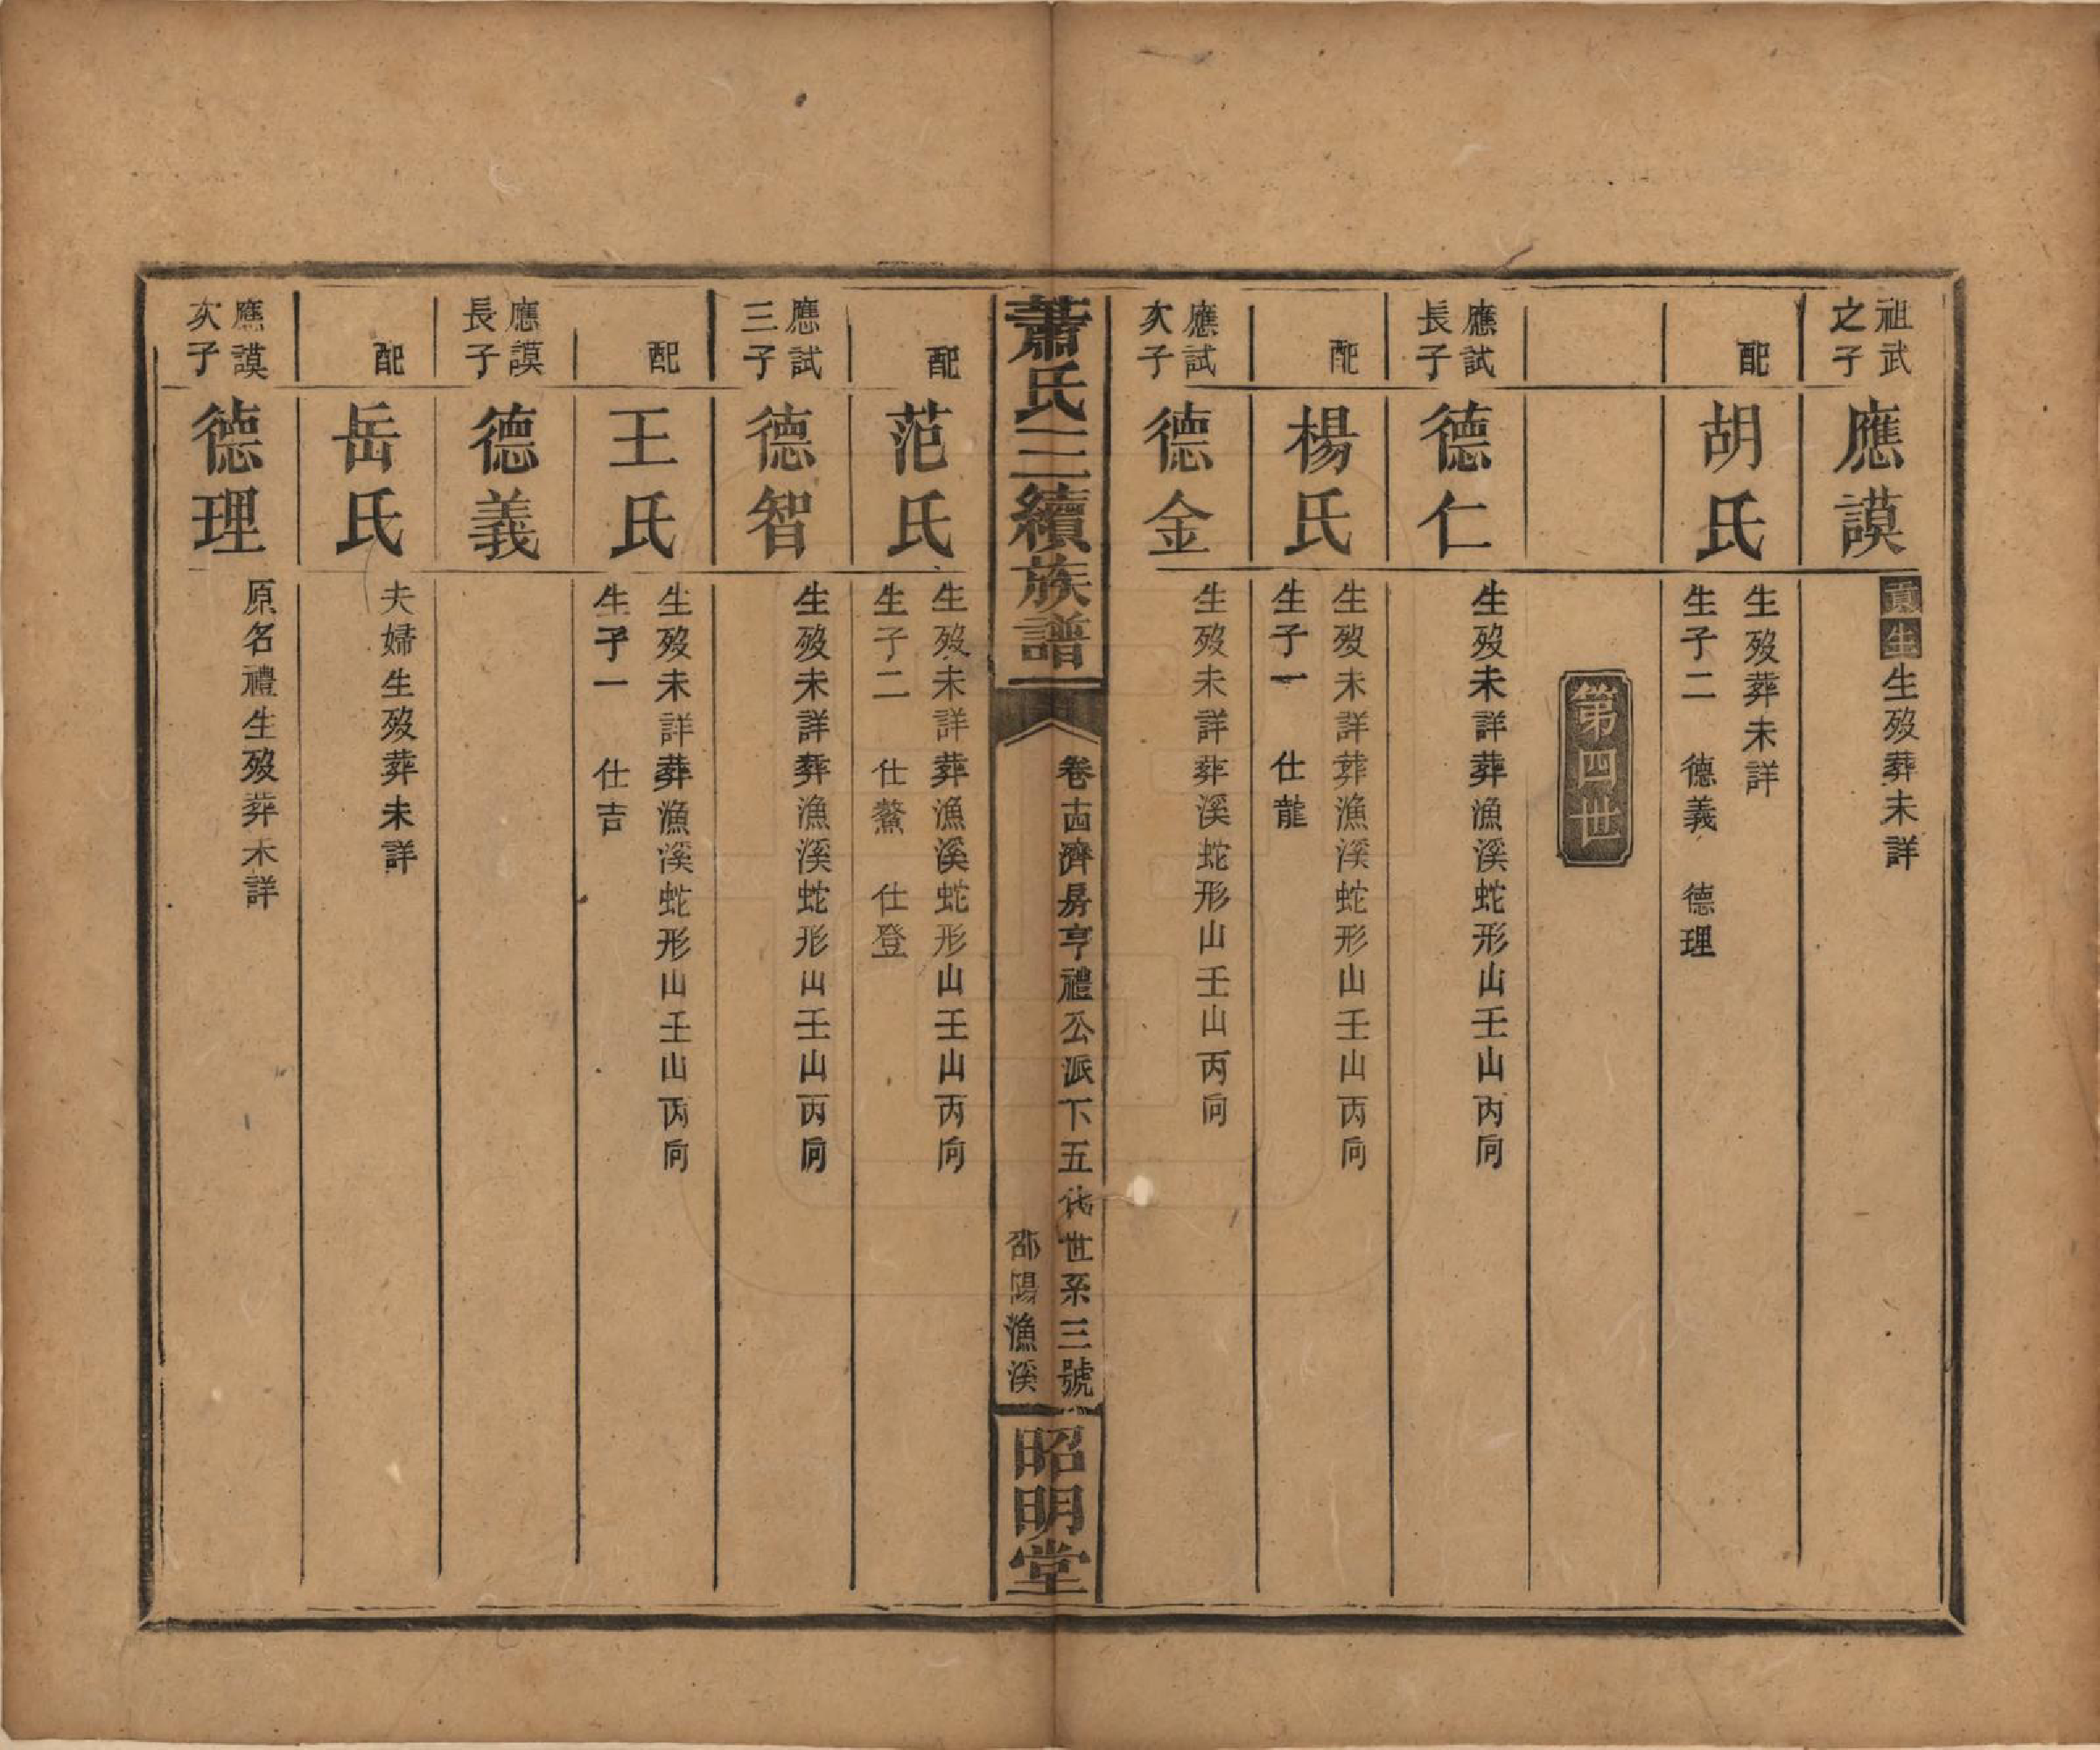 祖武
之子
應謨
貢生生歿葬未詳
配
胡氏
生歿葬未詳
生子二　德義　德理
第四世
應試
長子
德仁
生歿未詳葬漁溪蛇形山壬山丙向
配
楊氏
生歿未詳葬漁溪蛇形山壬山丙向
生子一　仕龍
應試
次子
德金
生歿未詳葬溪蛇形山壬山丙向
蕭氏三續族譜
卷古濟房亨禮公派下五代世系三號
邵陽漁溪
昭明堂
配
范氏
生歿未詳葬漁溪蛇形山壬山丙向
生子二　仕鰲　仕登
應試
三子
德智
生歿未詳葬漁溪蛇形山壬山丙向
配
王氏
生歿未詳葬漁溪蛇形山壬山丙向
生子一　仕吉
應謨
長子
德義
配
岳氏
夫婦生歿葬未詳
應謨
次子
德理
原名禮生歿葬未詳